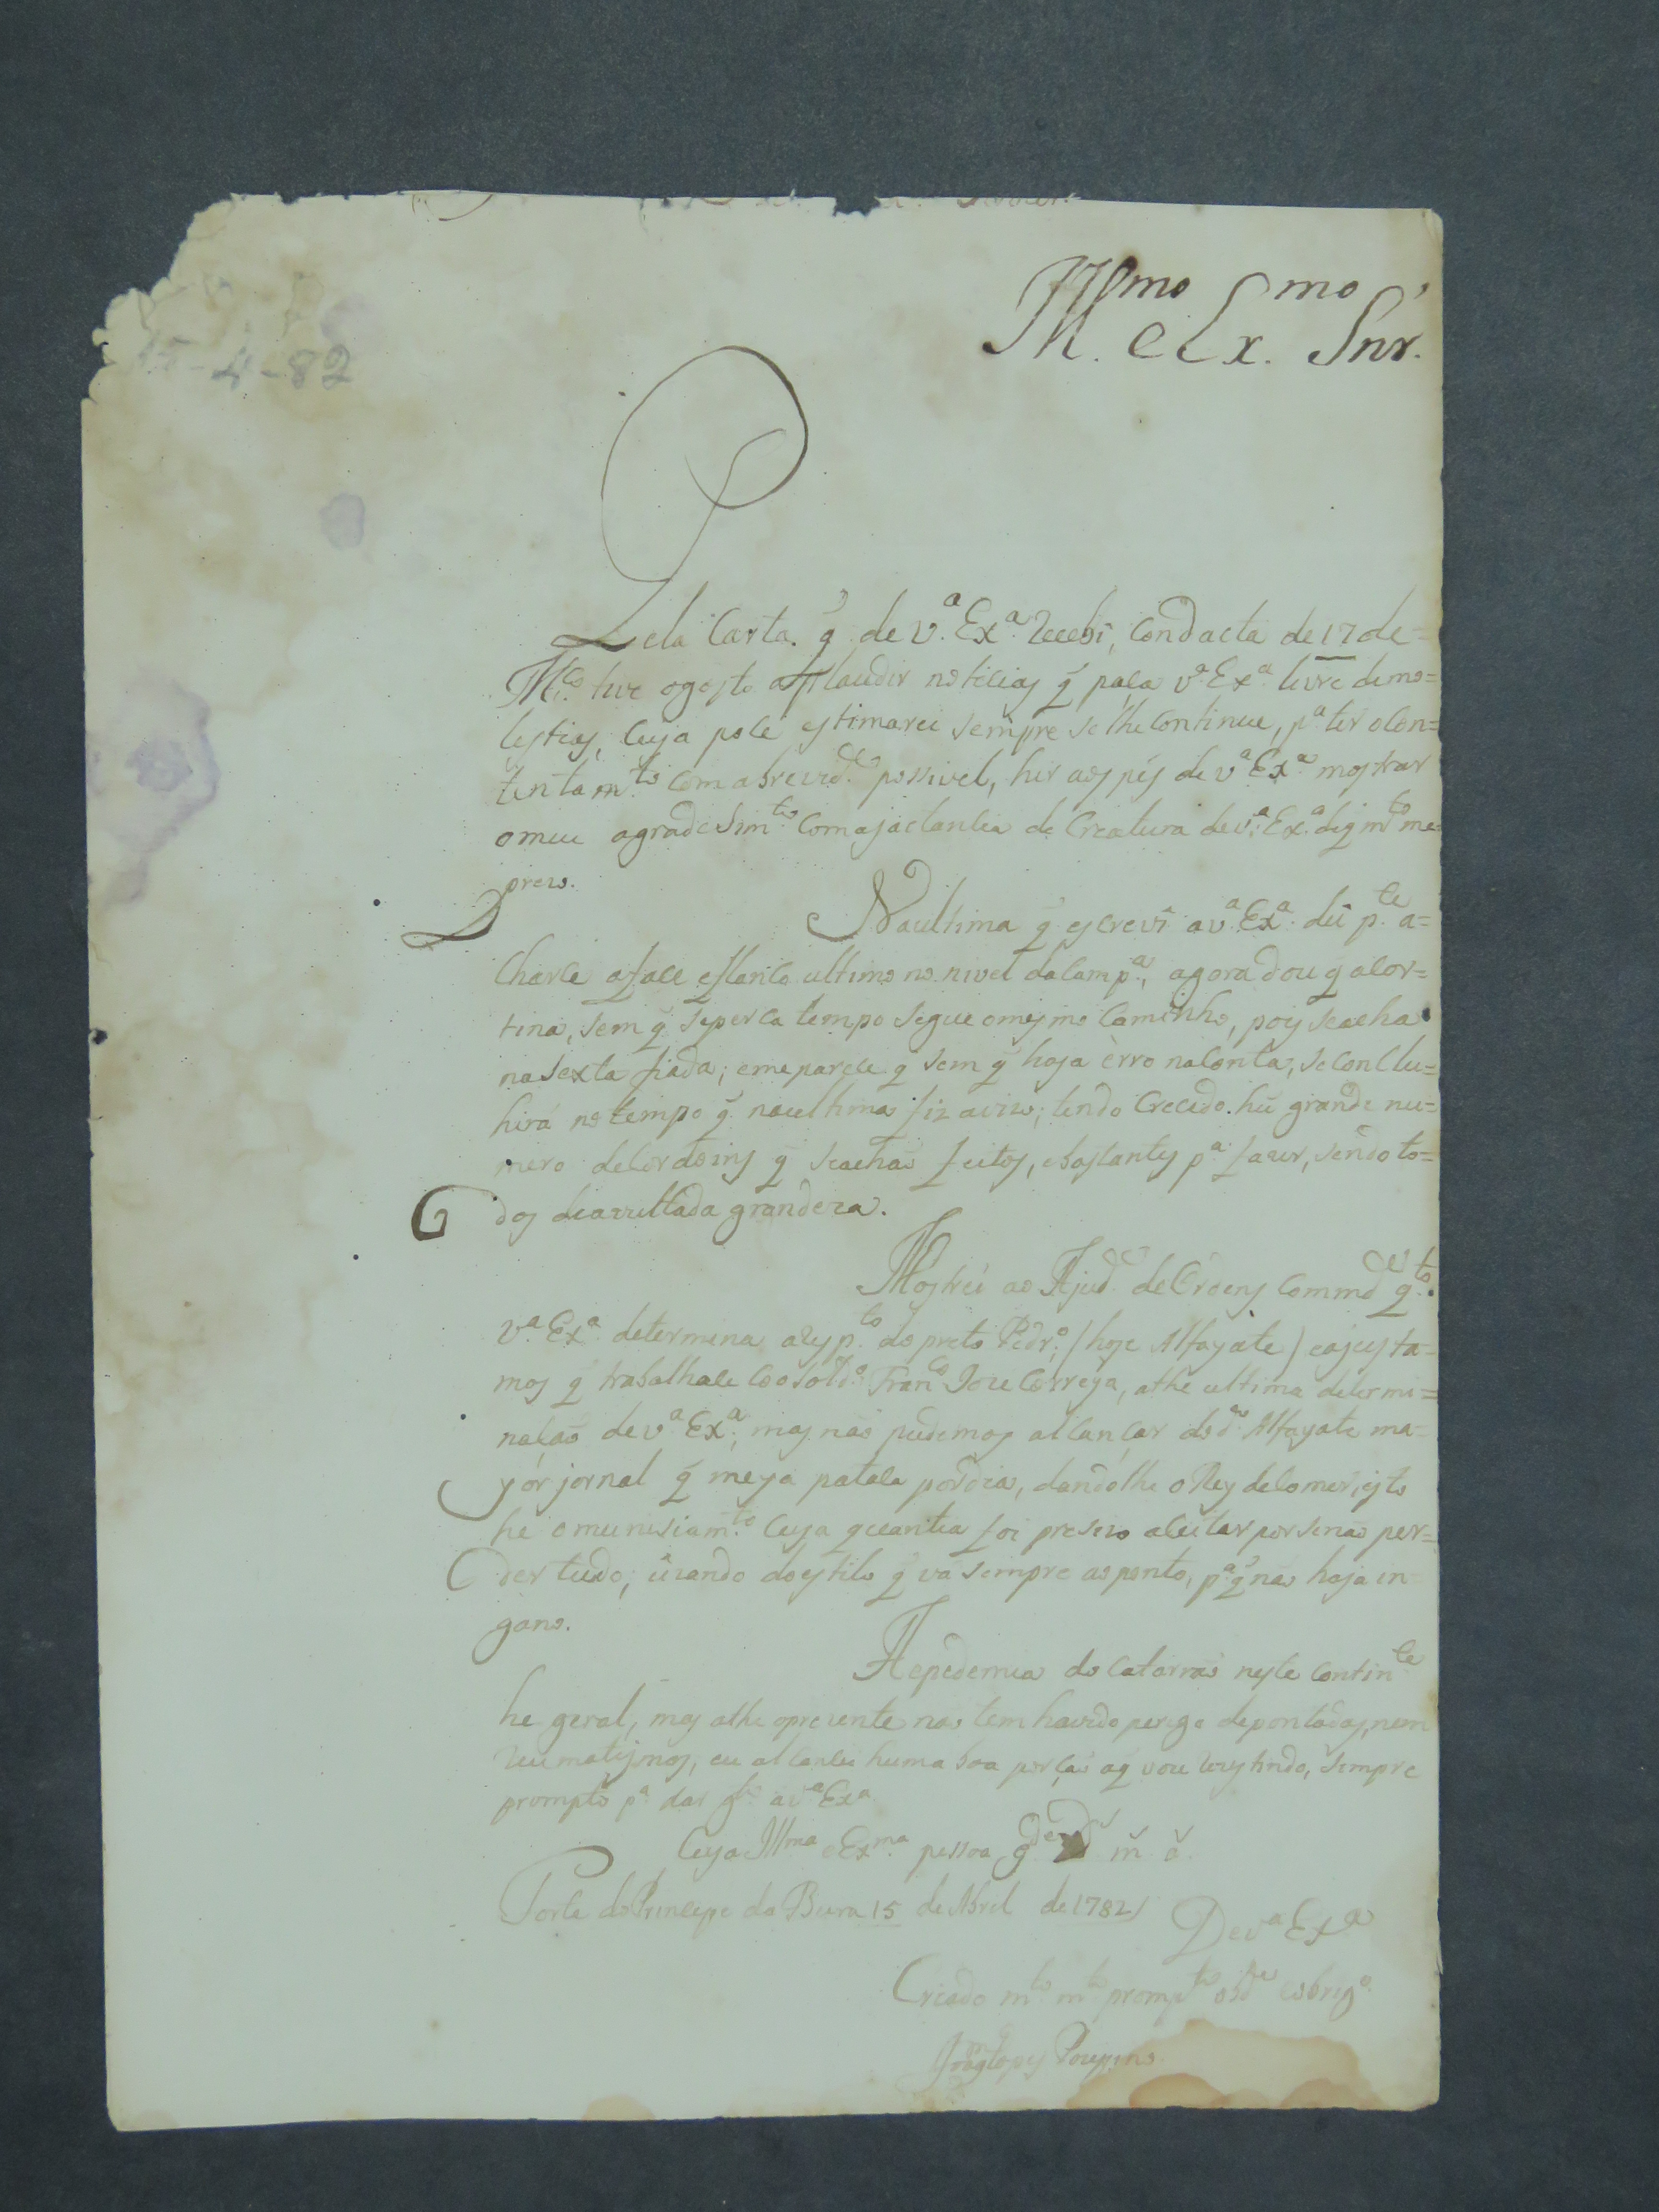 15-4-82
Illmo e Exmo Snr.
Pela Carta q̃ de V.ª Exª. recebi, Con data de 17 de=
M.ço tive o gosto applaudir noticias q̃ paça Vª Exª. livre de mo=
lestias, Cuja pose estimarei sempre se lhe Continue, pª ter o Con=
tentam.to Com a brevid.e possivel, hir aos pés de Vª Exª mostrar
o meu agradesim.to Com a jactancia de Creatura de Vª. Exª. 
prezo.
Na ultima q̃ escrevi a Vª Exª. dei p.te a=
charce a face ultimo no nivel da Camp.ª, agora dou q̃ a Cor=
tina, sem q̃ se perca tempo segue o mesmo Caminho, pois se acha
na sexta fiada; e me parece q̃ sem q̃ haja èrro na Conta, se Conclu=
hirá no tempo q̃ na ultima fiz avizo; tendo Crecido hũ grande nu=
mero de Cordoins q̃ se achaõ feitos, e bastantes pª fazer, sendo to=
dos de avultada grandeza.
Mostrei ao Ajud.e de Ordens Comm.de q.to
Vª. Exª. determina a resp.to do preto Pedr.o, / hoje Alfayate / e ajusta=
mos q̃ trabalhace Co o Sold.o Fran.co Joze Correya, athe ultima determi=
naçaõ de Vª Exª., mas naõ pudemos alcançar do d.o Alfayate ma=
yór jornal q̃ meya pataca por dia, dandolhe o Rey de Comer, isto
he o munisiam.to Cuja quantia foi presizo aceitar por se naõ per=
der tudo, uzando do estilo q̃ vá sempre ao ponto, pª q̃ naõ haja in=
gano.
A epedemia do Catarraõ neste Contin.te
he geral, mas athe o prezente naõ tem havido perigo de pontadas, nem
reumatismos, eu alcancei huma boa porçaõ a q̃ vou rezistindo, sempre
prompto pª dar g.to a Vª Exª
Cuja Illma e Exma. pessoa g.de D.s m. a.
Forte do Principe da Beira 15 de Abril de 1782
De Vª Exª
Criado m.to m.to promp.to ob.te e obrig.o